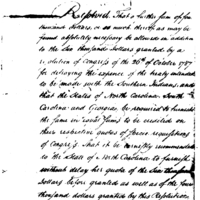 Resolved, That a further sum of four
thousand dollars, or so much thereof as may be
found absolutely necessary be allowed in addition
to the Six thousand dollars granted by a
resolution of Congress of the 26th of October 1787
for defraying the expence of the treaty intended
to be made with the Southern Indians, and
that the States of North Carolina South
Carolina and Georgia be required to furnish
the sum in equal sums to be credited on
their respective quotas of former requisitions
of Congress. That it be firmly recommended
to the State of North Carolina to furnish
without delay her quota of the Six thousand
dollars before granted as well as of the four
thousand dollars granted by this